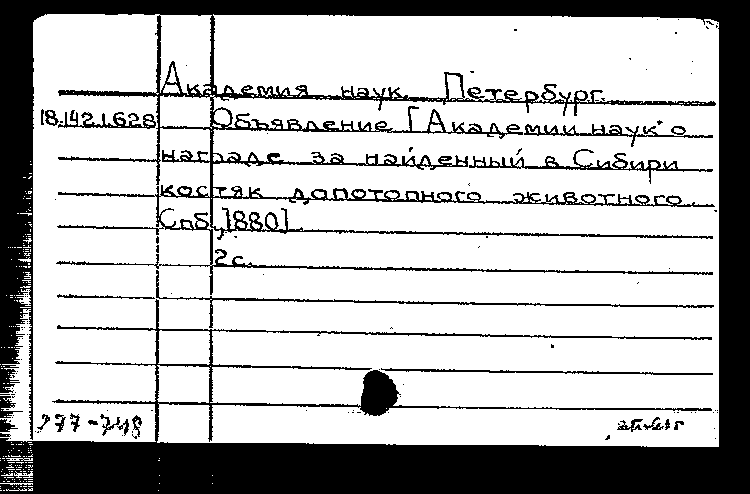 Академия наук. Петербург.
18.142.1.628 Объявление [Академии наук о
награде за найденный в Сибири
костяк допотопного животного.
Спб., 1880].
2 с.
277-748